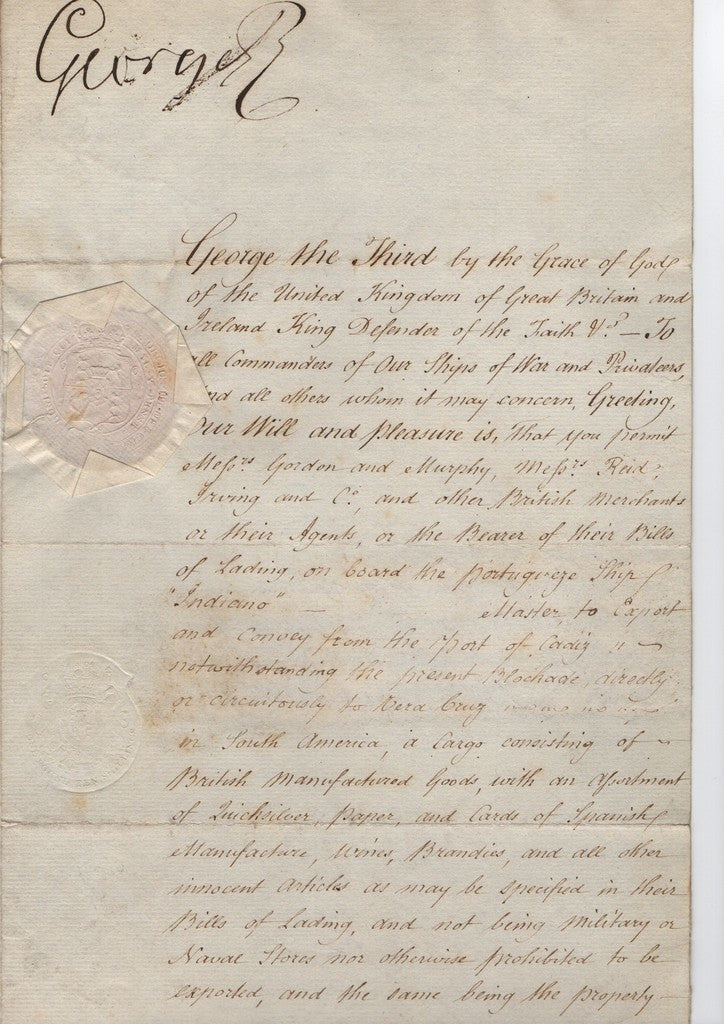 George R
George the Third by the Grace of God
of the United Kingdom of Great Britain and
Ireland King Defender of the Faith &c.ª — To
all Commanders of Our Ships of War and Privateers,
and all others whom it may concern, Greeting,
Our Will and pleasure is, that you permit
Messrs Gordon and Murphy, Messrs Reid,
Irving and Co, and other British Merchants
or their Agents, or the Bearer of their Bills
of Lading, on board the Portugueze Ship
"Indiano" — Master, to Export
and Convey from the Port of Cadiz
notwithstanding the present Blockade, directly
or circuitously to Vera Cruz
in South America, a Cargo consisting of
British Manufactured Goods, with an Assortment
of Quicksilver, paper, and Cards of Spanish
Manufacture, Wines, Brandies, and all other
innocent articles as may be specified in their
Bills of Lading, and not being Military or
Naval Stores nor otherwise prohibited to be
exported, and the same being the property